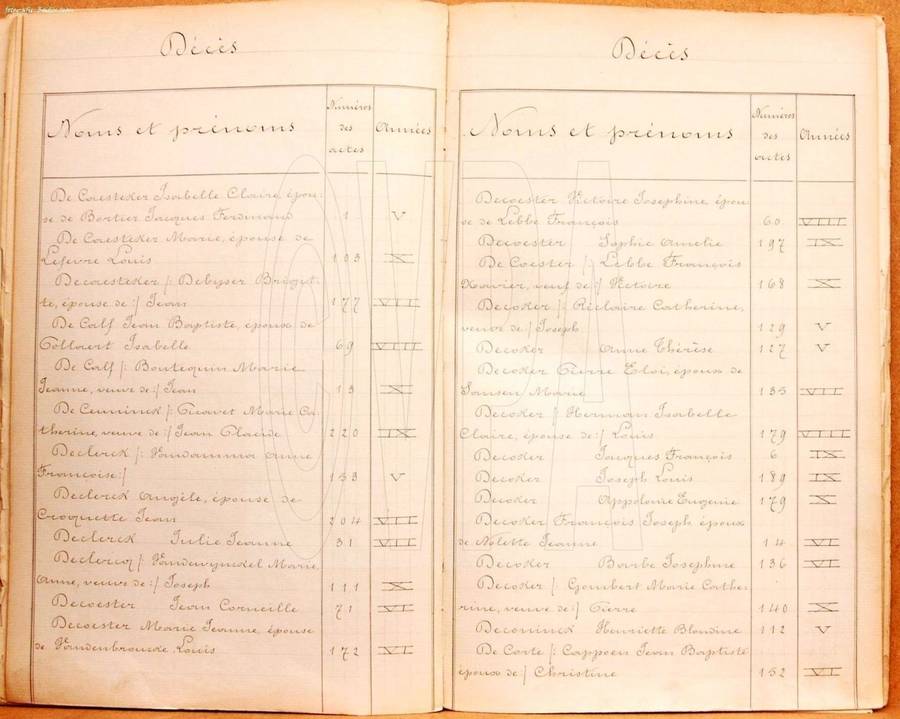 Décès
Noms et prénoms
Numéros
des
actes
Années
De Caesteker Isabelle Claire, épou-
se de Bortier Jacques Ferdinand 1 V
De Caesteker Marie, épouse de
Lefevre Louis 103 X
Decaesteker /: Debyser Brigit-
te, épouse de :/ Jean 177 VII
De Calf Jean Baptiste, époux de
Collaert Isabelle 69 VIII
De Calf /: Boutequin Marie
Jeanne, veuve de :/ Jean 13 X
De Ceuninck /: Marie Ca-
therine, veuve de :/ Jean Claude 220 IX
Declerck /: Vandamme Anne
Françoise :/ 153 V
Declerck Angèle, épouse de
Croquette Jean 204 VII
Declerck Julie Jeanne 31 VII
Declercq /: Marie
Anne, veuve de :/ Joseph 111 X
Decoester Jean Corneille 71 VI
Decoester Marie Jeanne, épouse
de Vandenbroucke Louis 172 VI
Décès
Noms et prénoms
Numéros
des
actes
Années
Decoester Victoire Josephine, épou
se de Lebbe François 60 VIII
Decoester Sophie Amelie 197 IX
De Coester /: Lebbe François
Xavier, veuf de :/ Victoire 168 X
Decoker /: Réclaire Catherine,
veuve de :/ Joseph 129 V
Decoker Anne Thérèse 127 V
Decoker Pierre Eloi, époux de
Jansen Marie 135 VII
Decoker /: Herman Isabelle
Claire, épouse de :/ Louis 179 VIII
Decoker Jacques François 6 IX
Decoker Joseph Louis 189 IX
Decoker Appolonie Eugenie 179 X
Decoker François Joseph, époux
de Nolette Jeanne 14 VI
Decoker Barbe Josephine 136 VI
Decoker /: Gombert Marie Cathe-
rine, veuve de :/ Pierre 140 X
Deconinck Henriette Blondine 112 V
De Corte /: Cappoen Jean Baptiste
époux de :/ Christine 152 VI